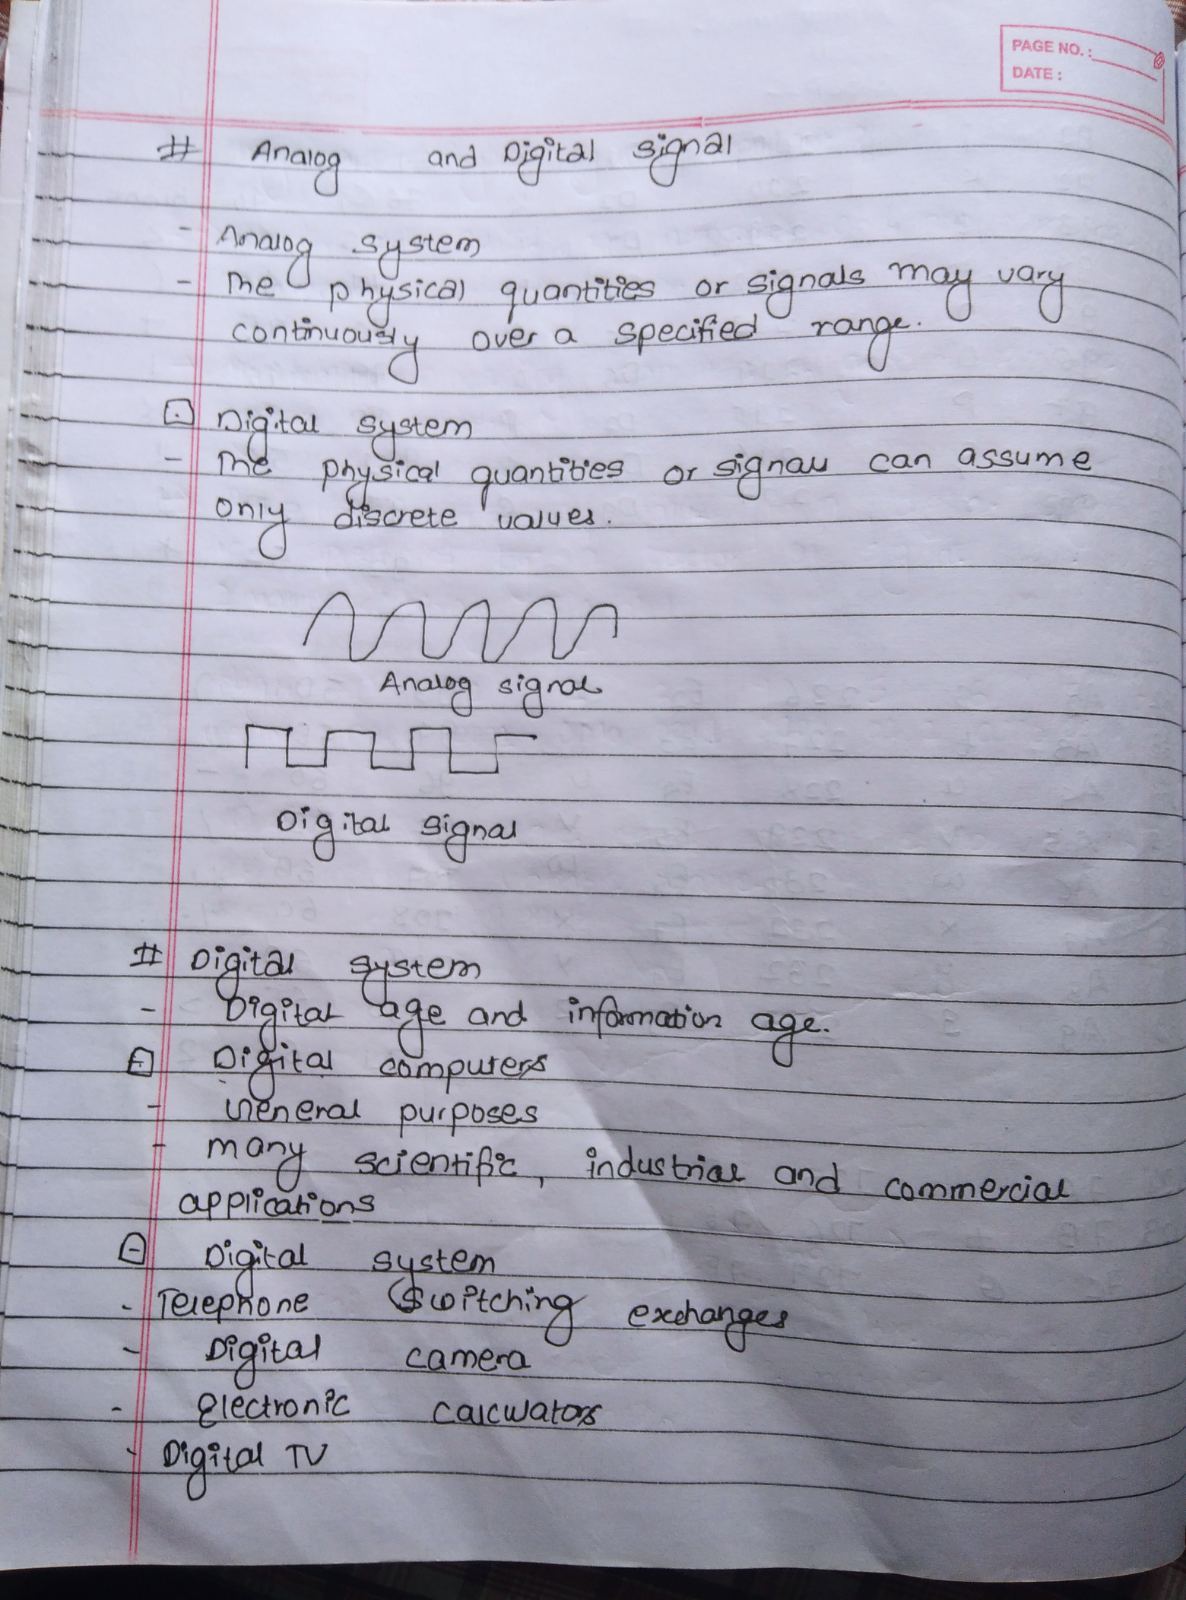 PAGE NO.:
DATE:
# Analog and Digital signal
- Analog system
- The physical quantities or signals may vary
continuously over a specified range.
Digital system
- The physical quantities or signals can assume
only discrete values.
Analog signal
Digital signal
# Digital system
- Digital age and information age.
Digital computers
- General purposes
- many scientific, industrial and commercial
applications
Digital system
- Telephone switching exchanges
- Digital camera
- Electronic calculators
- Digital TV